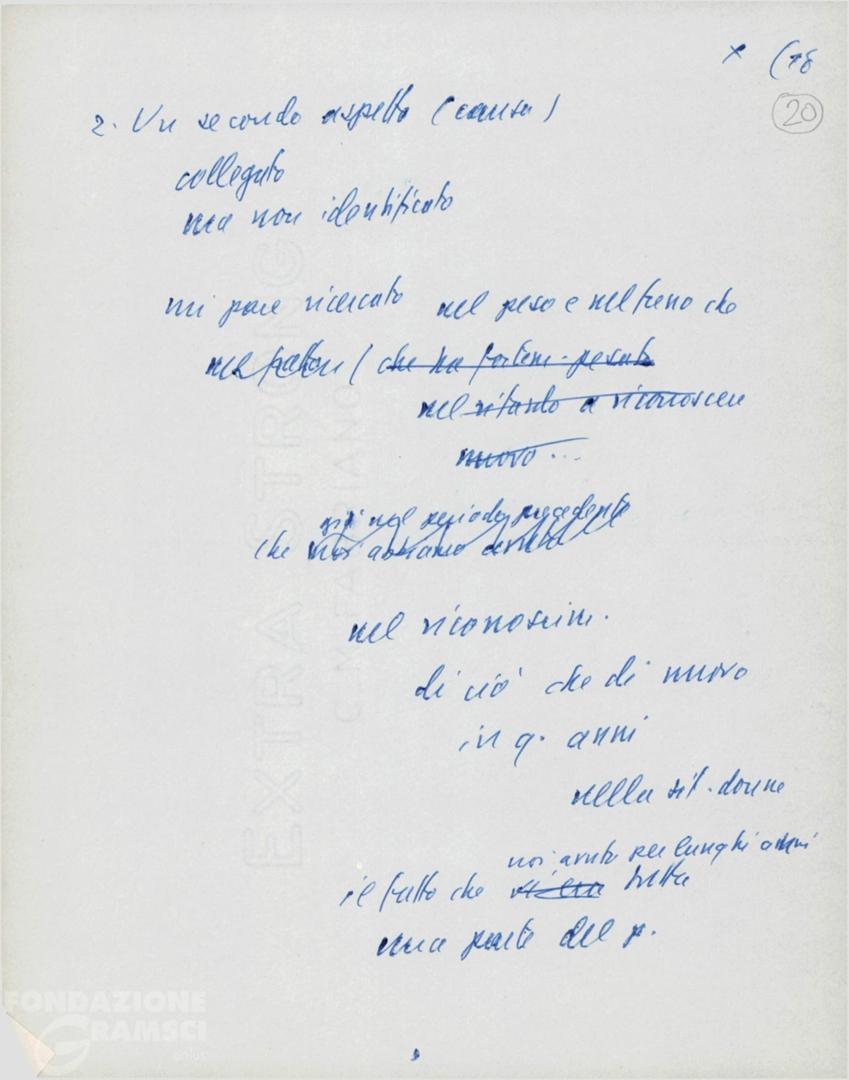 x (18
20
2. Un secondo aspetto (causa)
collegato
ma non identificato
mi pare ricercato nel peso e nel freno che
nel fatto (che ha fortem. pesato
nel ritardo a riconoscere
nuovo...
già nel periodo precedente
che noi abbiamo avuto
nel riconoscim.
di ciò che di nuovo
in q. anni
nella sit. donne
noi avuto per lunghi anni
il fatto che tutta
una parte del p.
EXTRA STRONG
C. M. FABRIANO
FONDAZIONE
GRAMSCI
onlus